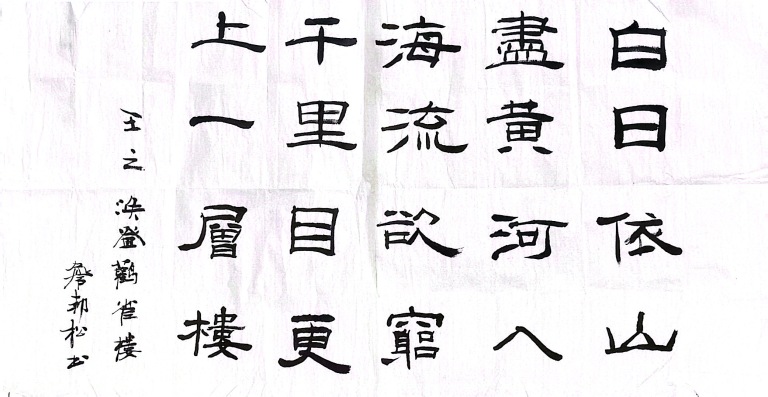 白日依山
盡黃河入
海流欲窮
千里目更
上一層樓
王之渙登鸛雀樓
詹邦松书